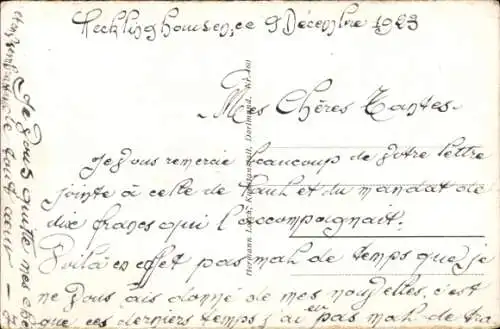 Recklinghousen, ce 9 Décembre 1923
Mes Chères Tantes
Je vous remercie beaucoup de votre lettre
jointe à celle de Paul et du mandat de
dix francs qui l'accompagnait.
Voilà en effet pas mal de temps que je
ne vous ais donné de mes nouvelles, c'est
que ces derniers temps j'ai eu pas mal de tra
Je vous quitte mes chè
de tout cœur
Hermann Lorch, Kunstanstalt, Dortmund.